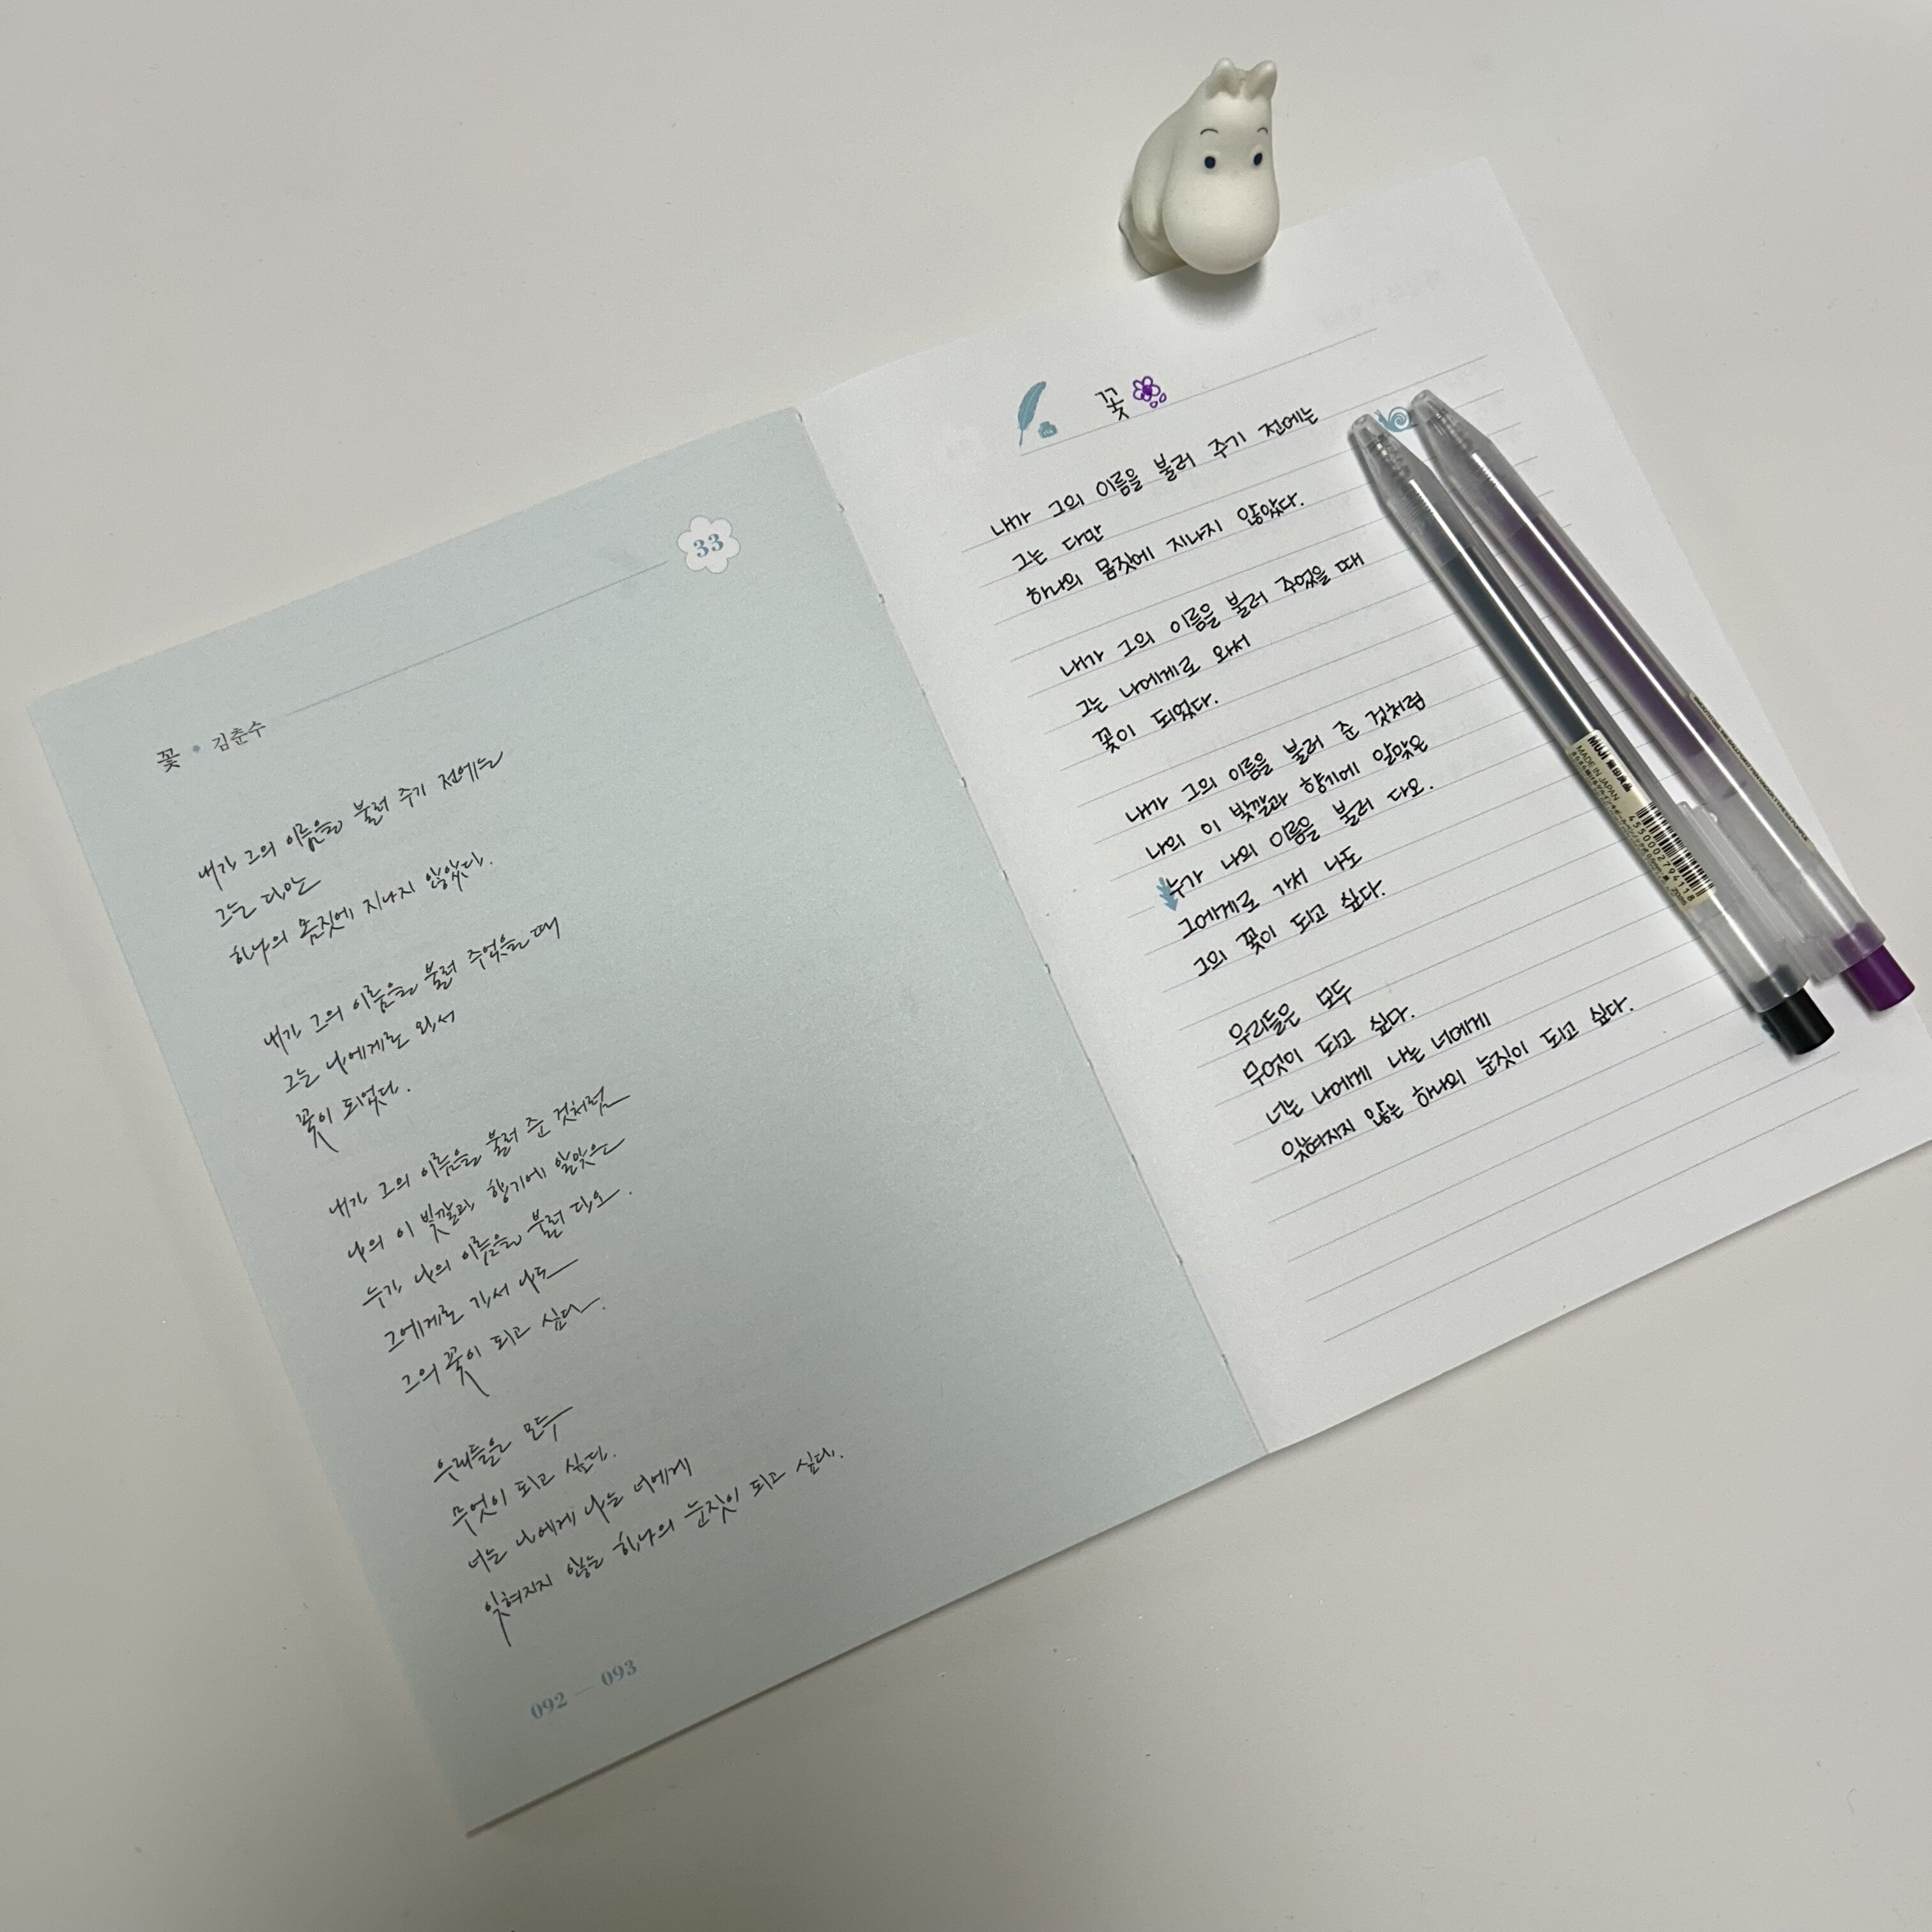 33
꽃 • 김춘수
내가 그의 이름을 불러 주기 전에는
그는 다만
하나의 몸짓에 지나지 않았다.
내가 그의 이름을 불러 주었을 때
그는 나에게로 와서
꽃이 되었다.
내가 그의 이름을 불러 준 것처럼
나의 이 빛깔과 향기에 알맞은
누가 나의 이름을 불러 다오.
그에게로 가서 나도
그의 꽃이 되고 싶다.
우리들은 모두
무엇이 되고 싶다.
너는 나에게 나는 너에게
잊혀지지 않는 하나의 눈짓이 되고 싶다.
092 — 093
꽃
내가 그의 이름을 불러 주기 전에는
그는 다만
하나의 몸짓에 지나지 않았다.
내가 그의 이름을 불러 주었을 때
그는 나에게로 와서
꽃이 되었다.
내가 그의 이름을 불러 준 것처럼
나의 이 빛깔과 향기에 알맞은
누가 나의 이름을 불러 다오.
그에게로 가서 나도
그의 꽃이 되고 싶다.
우리들은 모두
무엇이 되고 싶다.
너는 나에게 나는 너에게
잊혀지지 않는 하나의 눈짓이 되고 싶다.
MUJI 無印良品
MADE IN JAPAN
4550002794118